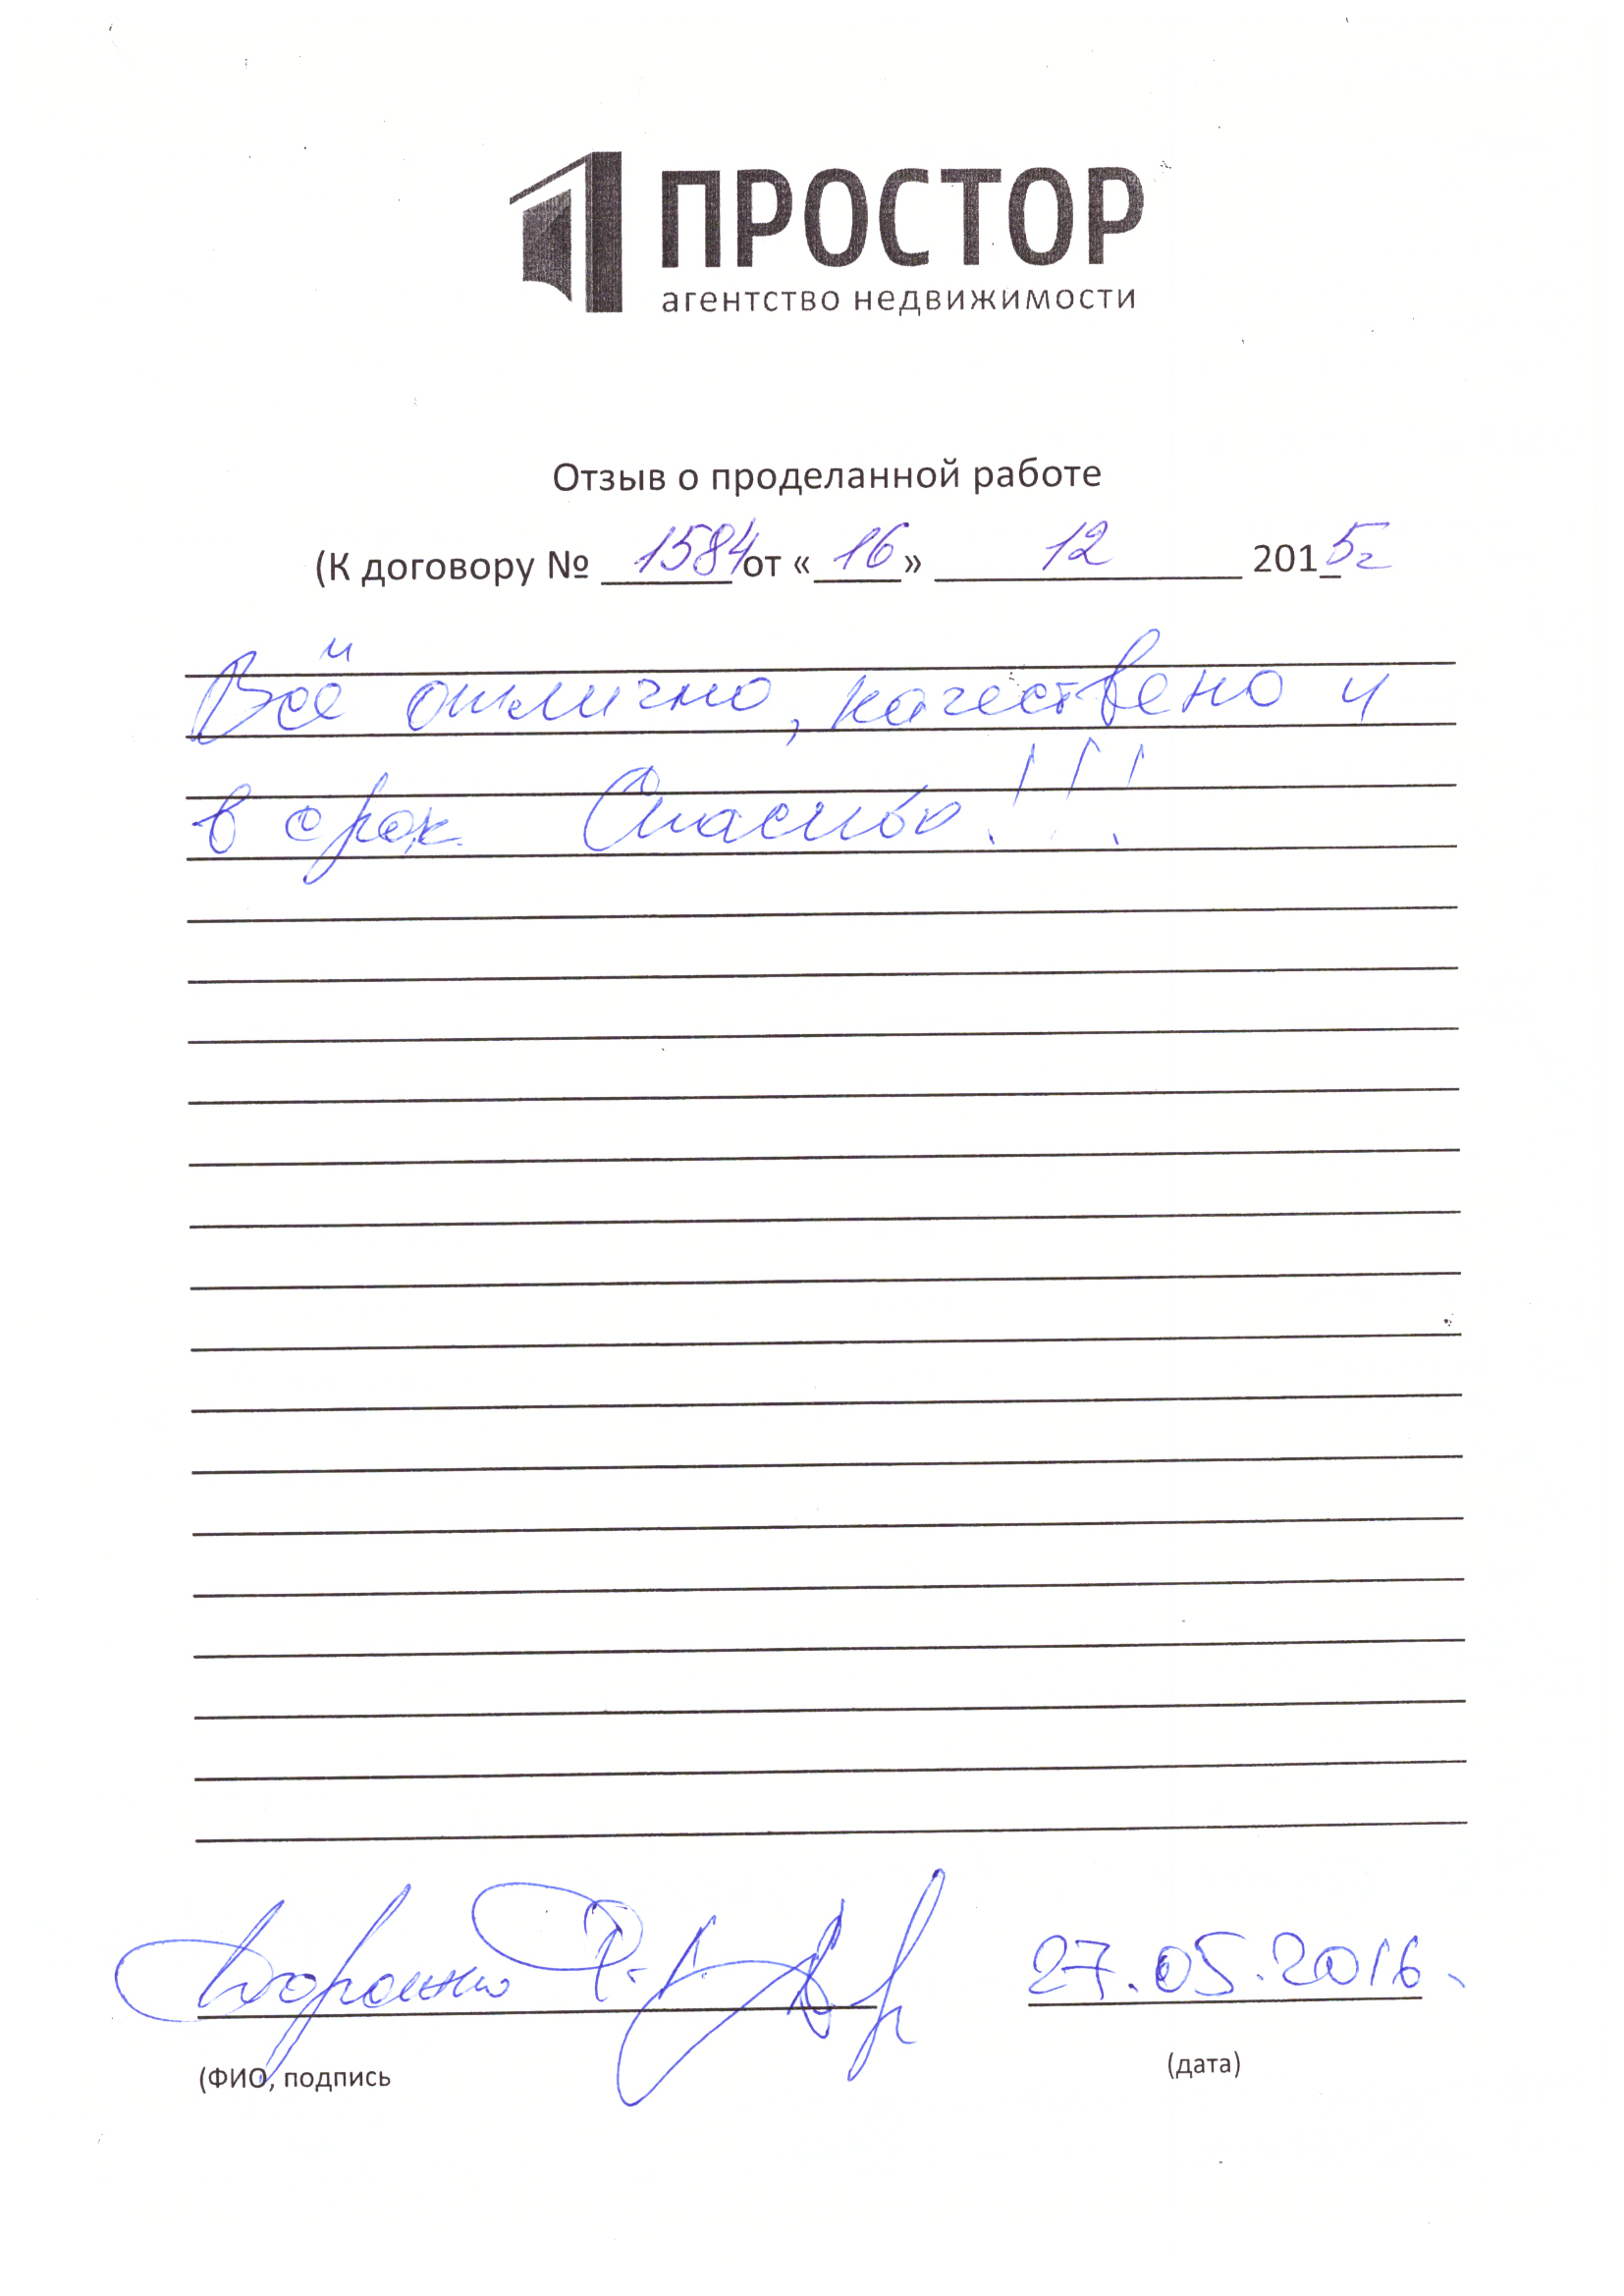 ПРОСТОР
агентство недвижимости
Отзыв о проделанной работе
(К договору № 1584 от «16» 12 2015г
Всё отлично, качествено и
в срок Спасибо!!!
27.05.2016.
(ФИО, подпись
(дата)